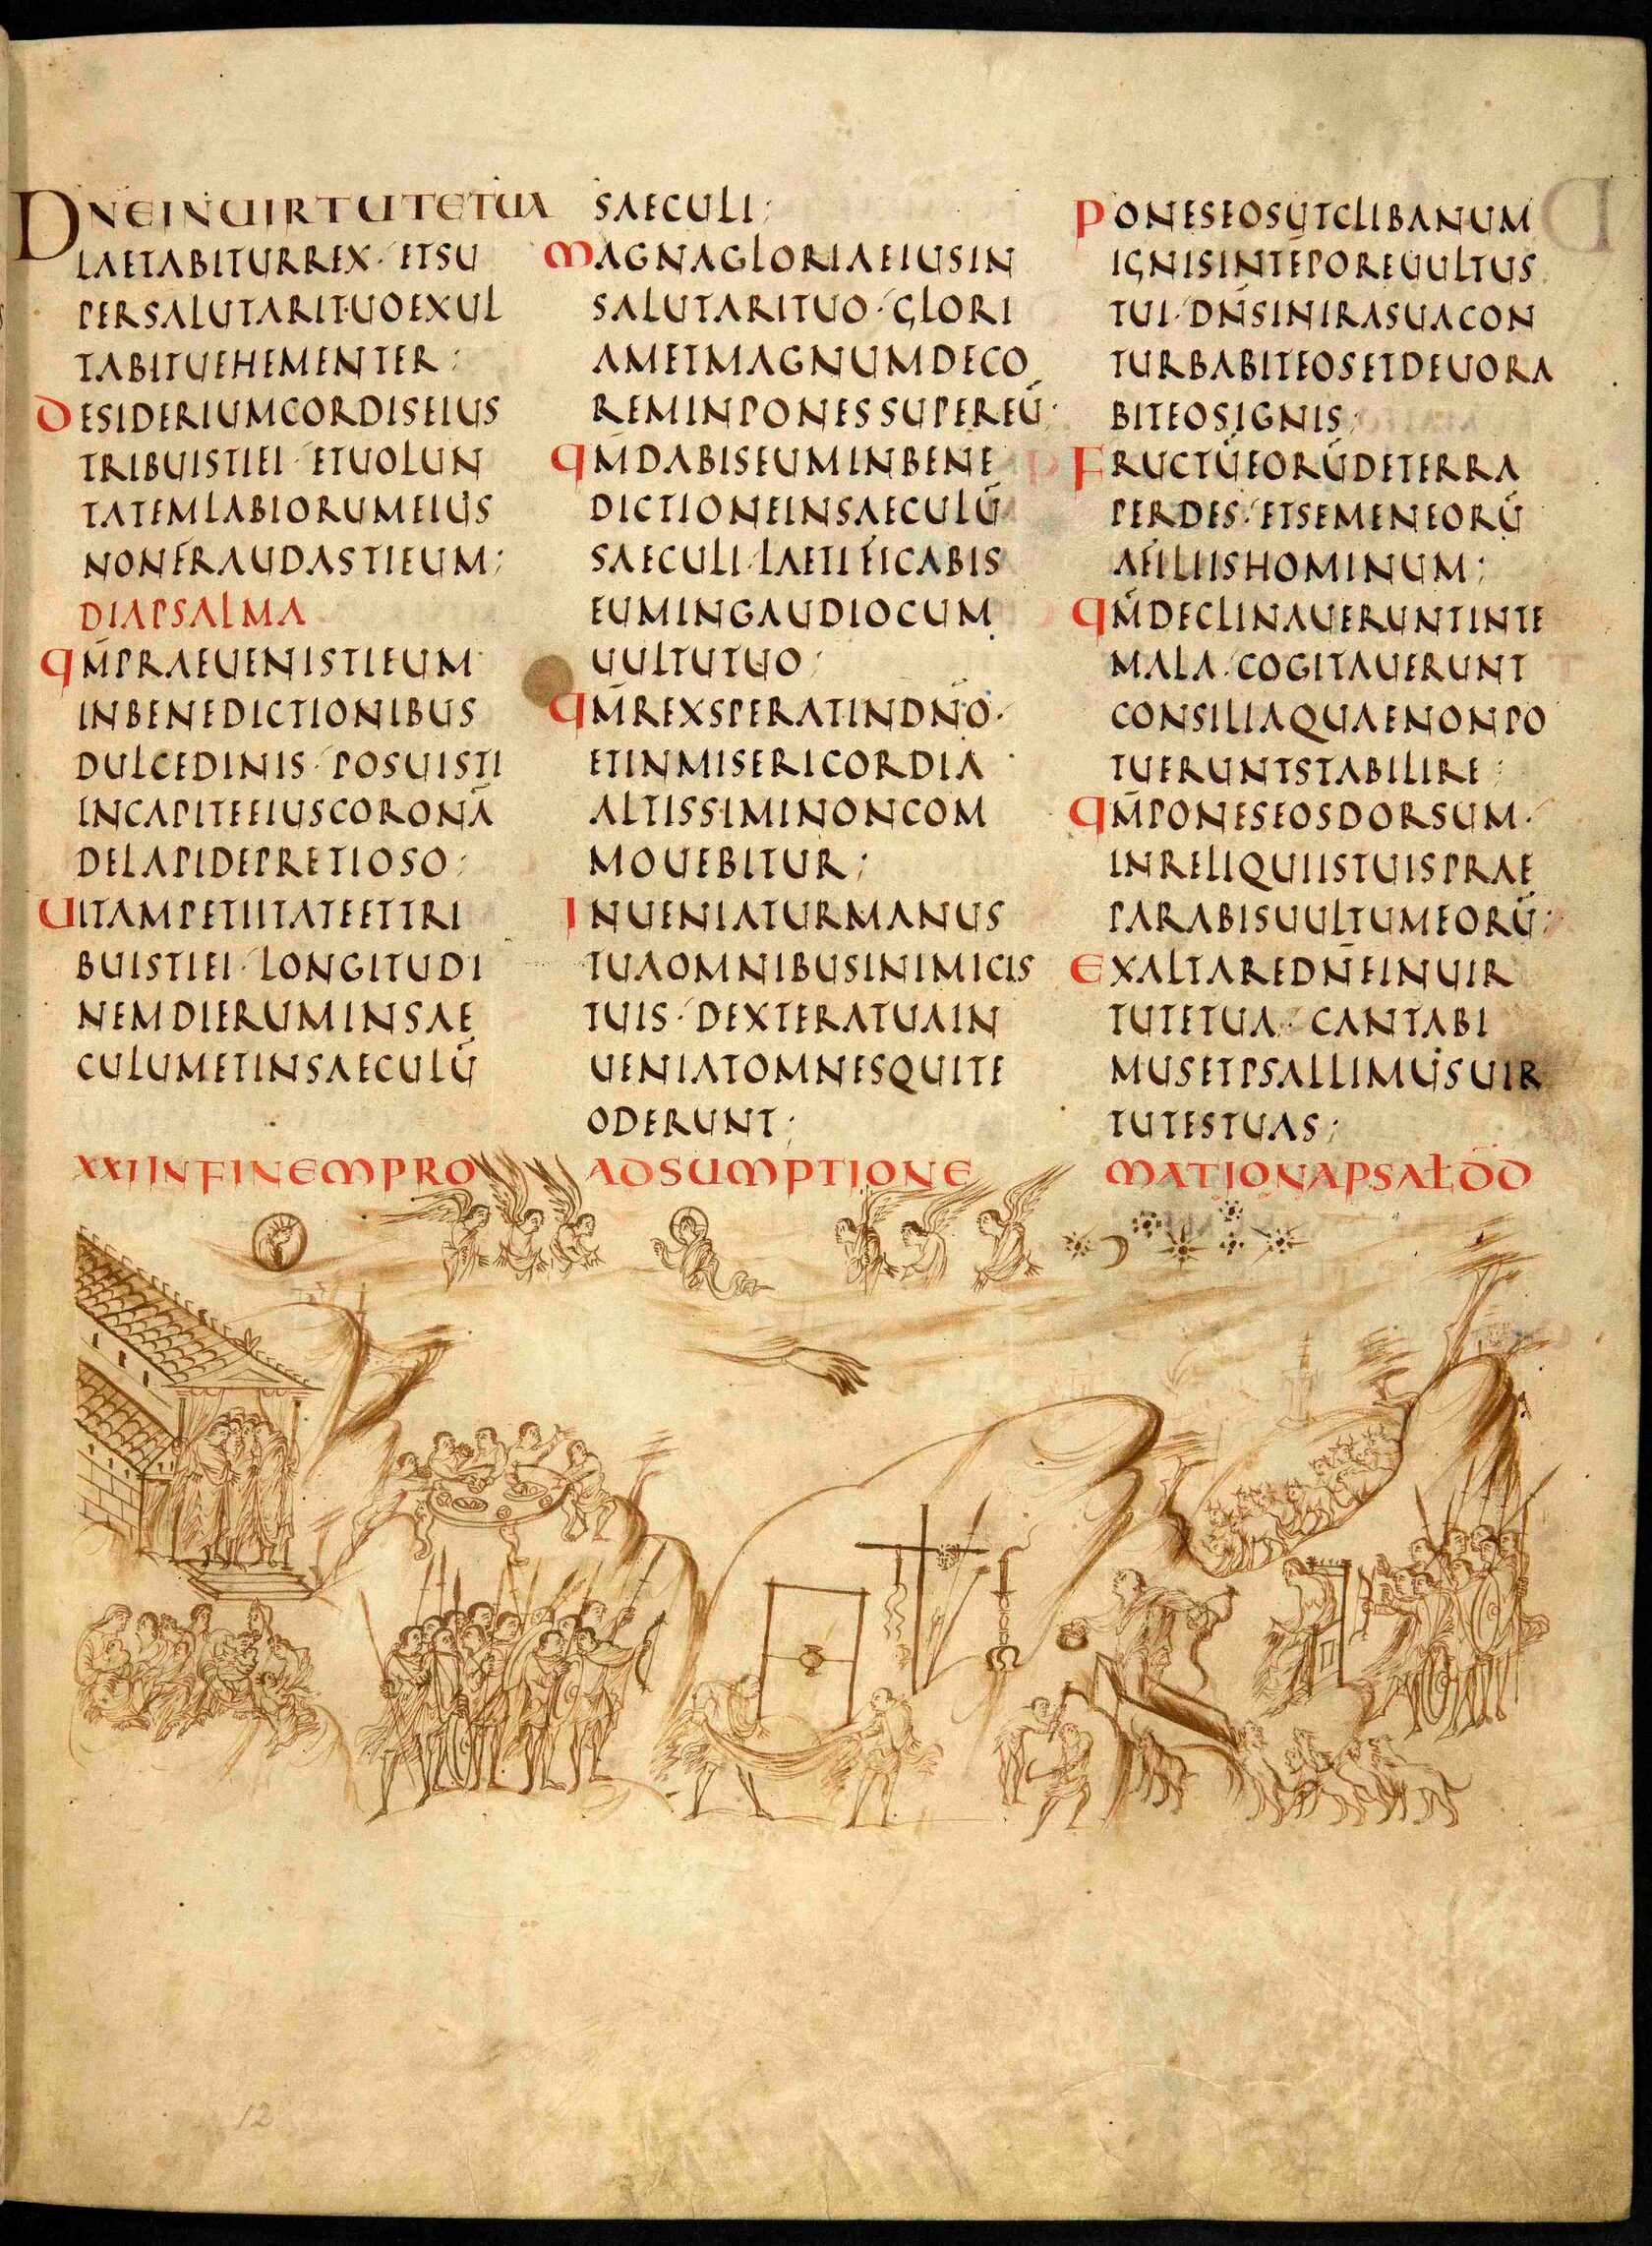 DN̄EINUIRTUTETUA
LAETABITURREX· ETSU
PERSALUTARITUOEXUL
TABITUEHEMENTER;
DESIDERIUMCORDISEIUS
TRIBUISTIEI· ETUOLUN
TATEMLABIORUMEIUS
NONFRAUDASTIEUM;
DIAPSALMA
QM̄PRAEUENISTIEUM
INBENEDICTIONIBUS
DULCEDINIS· POSUISTI
INCAPITEEIUSCORONĀ
DELAPIDEPRETIOSO;
UITAMPETIITATEETTRI
BUISTIEI· LONGITUDI
NEMDIERUMINSAE
CULUMETINSAECULŪ
SAECULI;
MAGNAGLORIAEIUSIN
SALUTARITUO· GLORI
AMETMAGNUMDECO
REMINPONESSUPEREŪ·
QM̄DABISEUMINBENE
DICTIONEINSAECULŪ
SAECULI· LAETIFICABIS
EUMINGAUDIOCUM
UULTUTUO;
QM̄REXSPERATINDN̄O·
ETINMISERICORDIA
ALTISSIMINONCOM
MOUEBITUR;
INUENIATURMANUS
TUAOMNIBUSINIMICIS
TUIS· DEXTERATUAIN
UENIATOMNESQUITE
ODERUNT;
PONESEOSUTCLIBANUM
IGNISINTĒPOREUULTUS
TUI· DN̄SINIRASUACON
TURBABITEOSETDEUORA
BITEOSIGNIS;
FRUCTŪEORŪDETERRA
PERDES· ETSEMENEORŪ
AFILIISHOMINUM;
QM̄DECLINAUERUNTINTE
MALA· COGITAUERUNT
CONSILIAQUAENONPO
TUERUNTSTABILIRE;
QM̄PONESEOSDORSUM·
INRELIQUIISTUISPRAE
PARABISUULTUMEORŪ;
EXALTAREDN̄EINUIR
TUTETUA· CANTABI
MUSETPSALLIMUSUIR
TUTESTUAS;
XXIINFINEMPRO ADSUMPTIONE MATIONAPSAŁDD
12